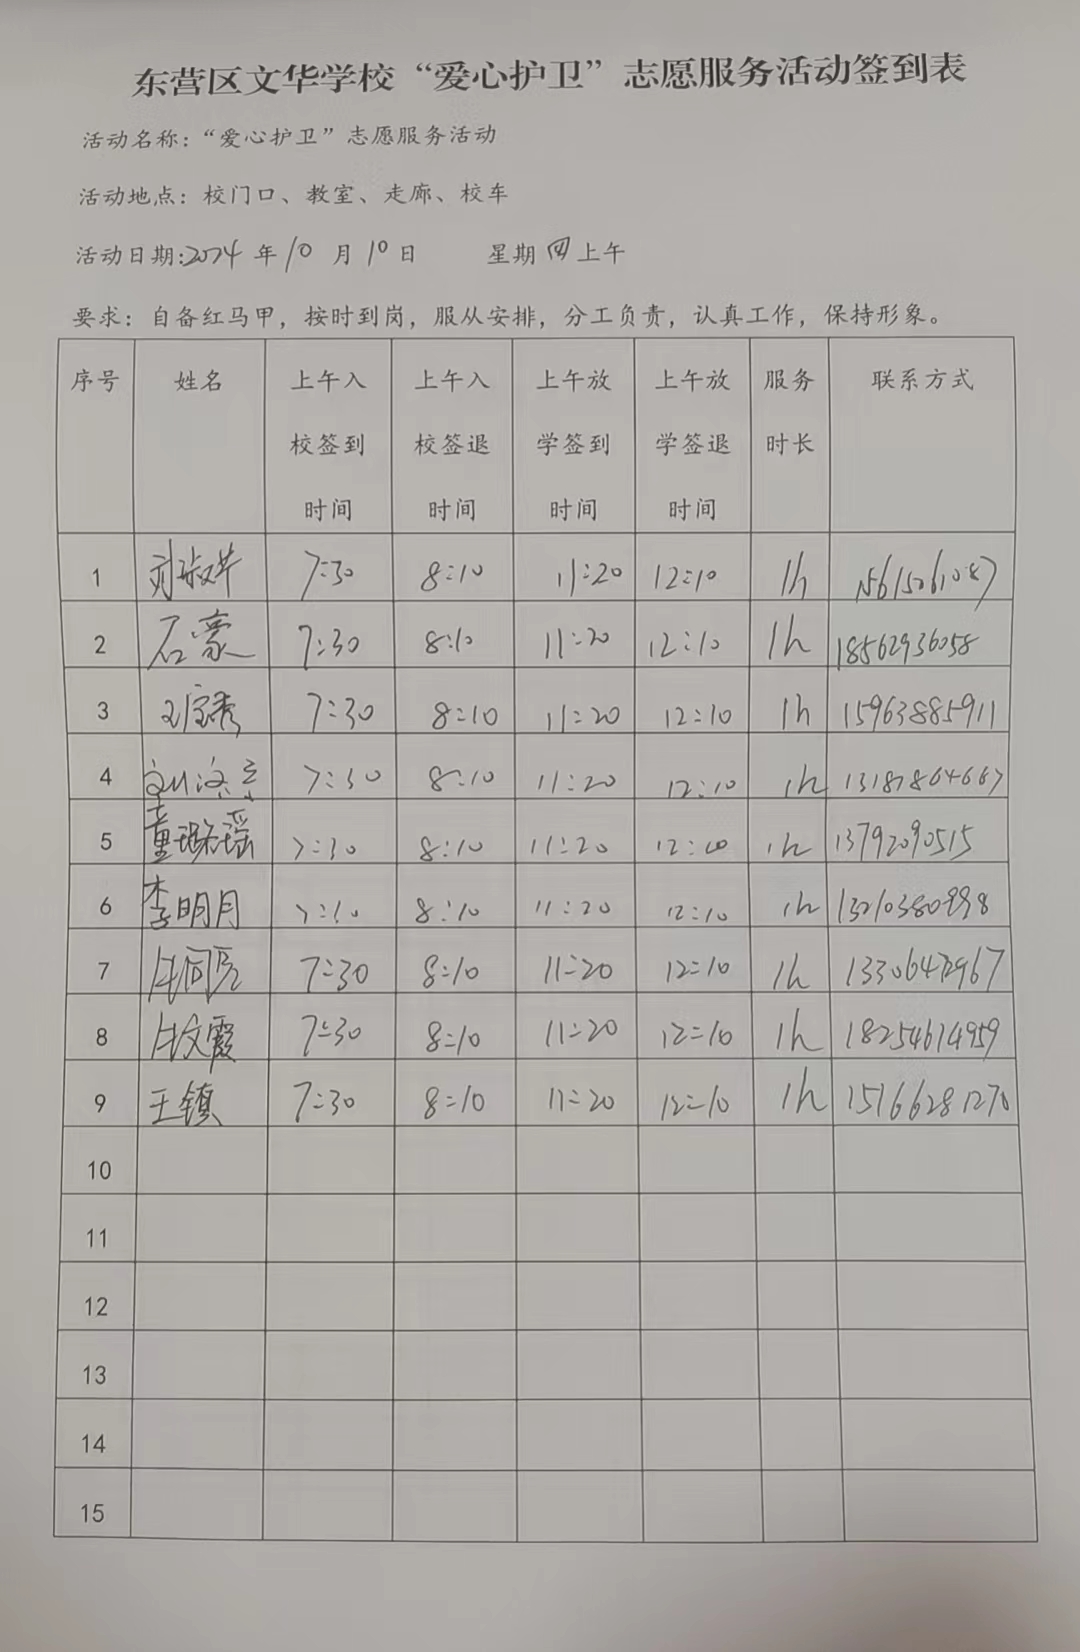 东营区文华学校“爱心护卫”志愿服务活动签到表
活动名称：“爱心护卫”志愿服务活动
活动地点：校门口、教室、走廊、校车
活动日期:2024年10月10日 星期四上午
要求：自备红马甲，按时到岗，服从安排，分工负责，认真工作，保持形象。
序号 姓名 上午入校签到时间 上午入校签退时间 上午放学签到时间 上午放学签退时间 服务时长 联系方式
1 7:30 8:10 11:20 12:10 1h
2 石豪 7:30 8:10 11:20 12:10 1h 18562936058
3 7:30 8:10 11:20 12:10 1h 15963885911
4 7:30 8:10 11:20 12:10 1h
5 童璐瑶 7:30 8:10 11:20 12:10 1h 13792090515
6 李明月 8:10 11:20 12:10 1h
7 7:30 8:10 11:20 12:10 1h
8 7:30 8:10 11:20 12:10 1h 18254614959
9 王镇 7:30 8:10 11:20 12:10 1h 15166281270
10
11
12
13
14
15